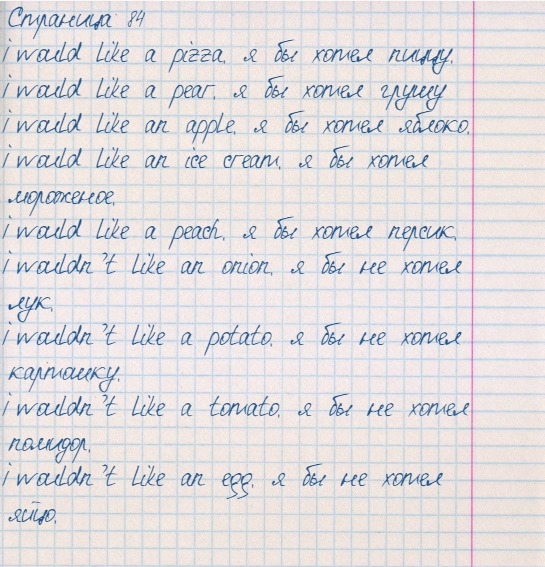 Страница 84
i would like a pizza. я бы хотел пиццу.
i would like a pear. я бы хотел грушу
i would like an apple. я бы хотел яблоко.
i would like an ice cream. я бы хотел
мороженое.
i would like a peach. я бы хотел персик.
i wouldn't like an onion. я бы не хотел
лук.
i wouldn't like a potato. я бы не хотел
картошку.
i wouldn't like a tomato. я бы не хотел
помидор.
i wouldn't like an egg. я бы не хотел
яйцо.